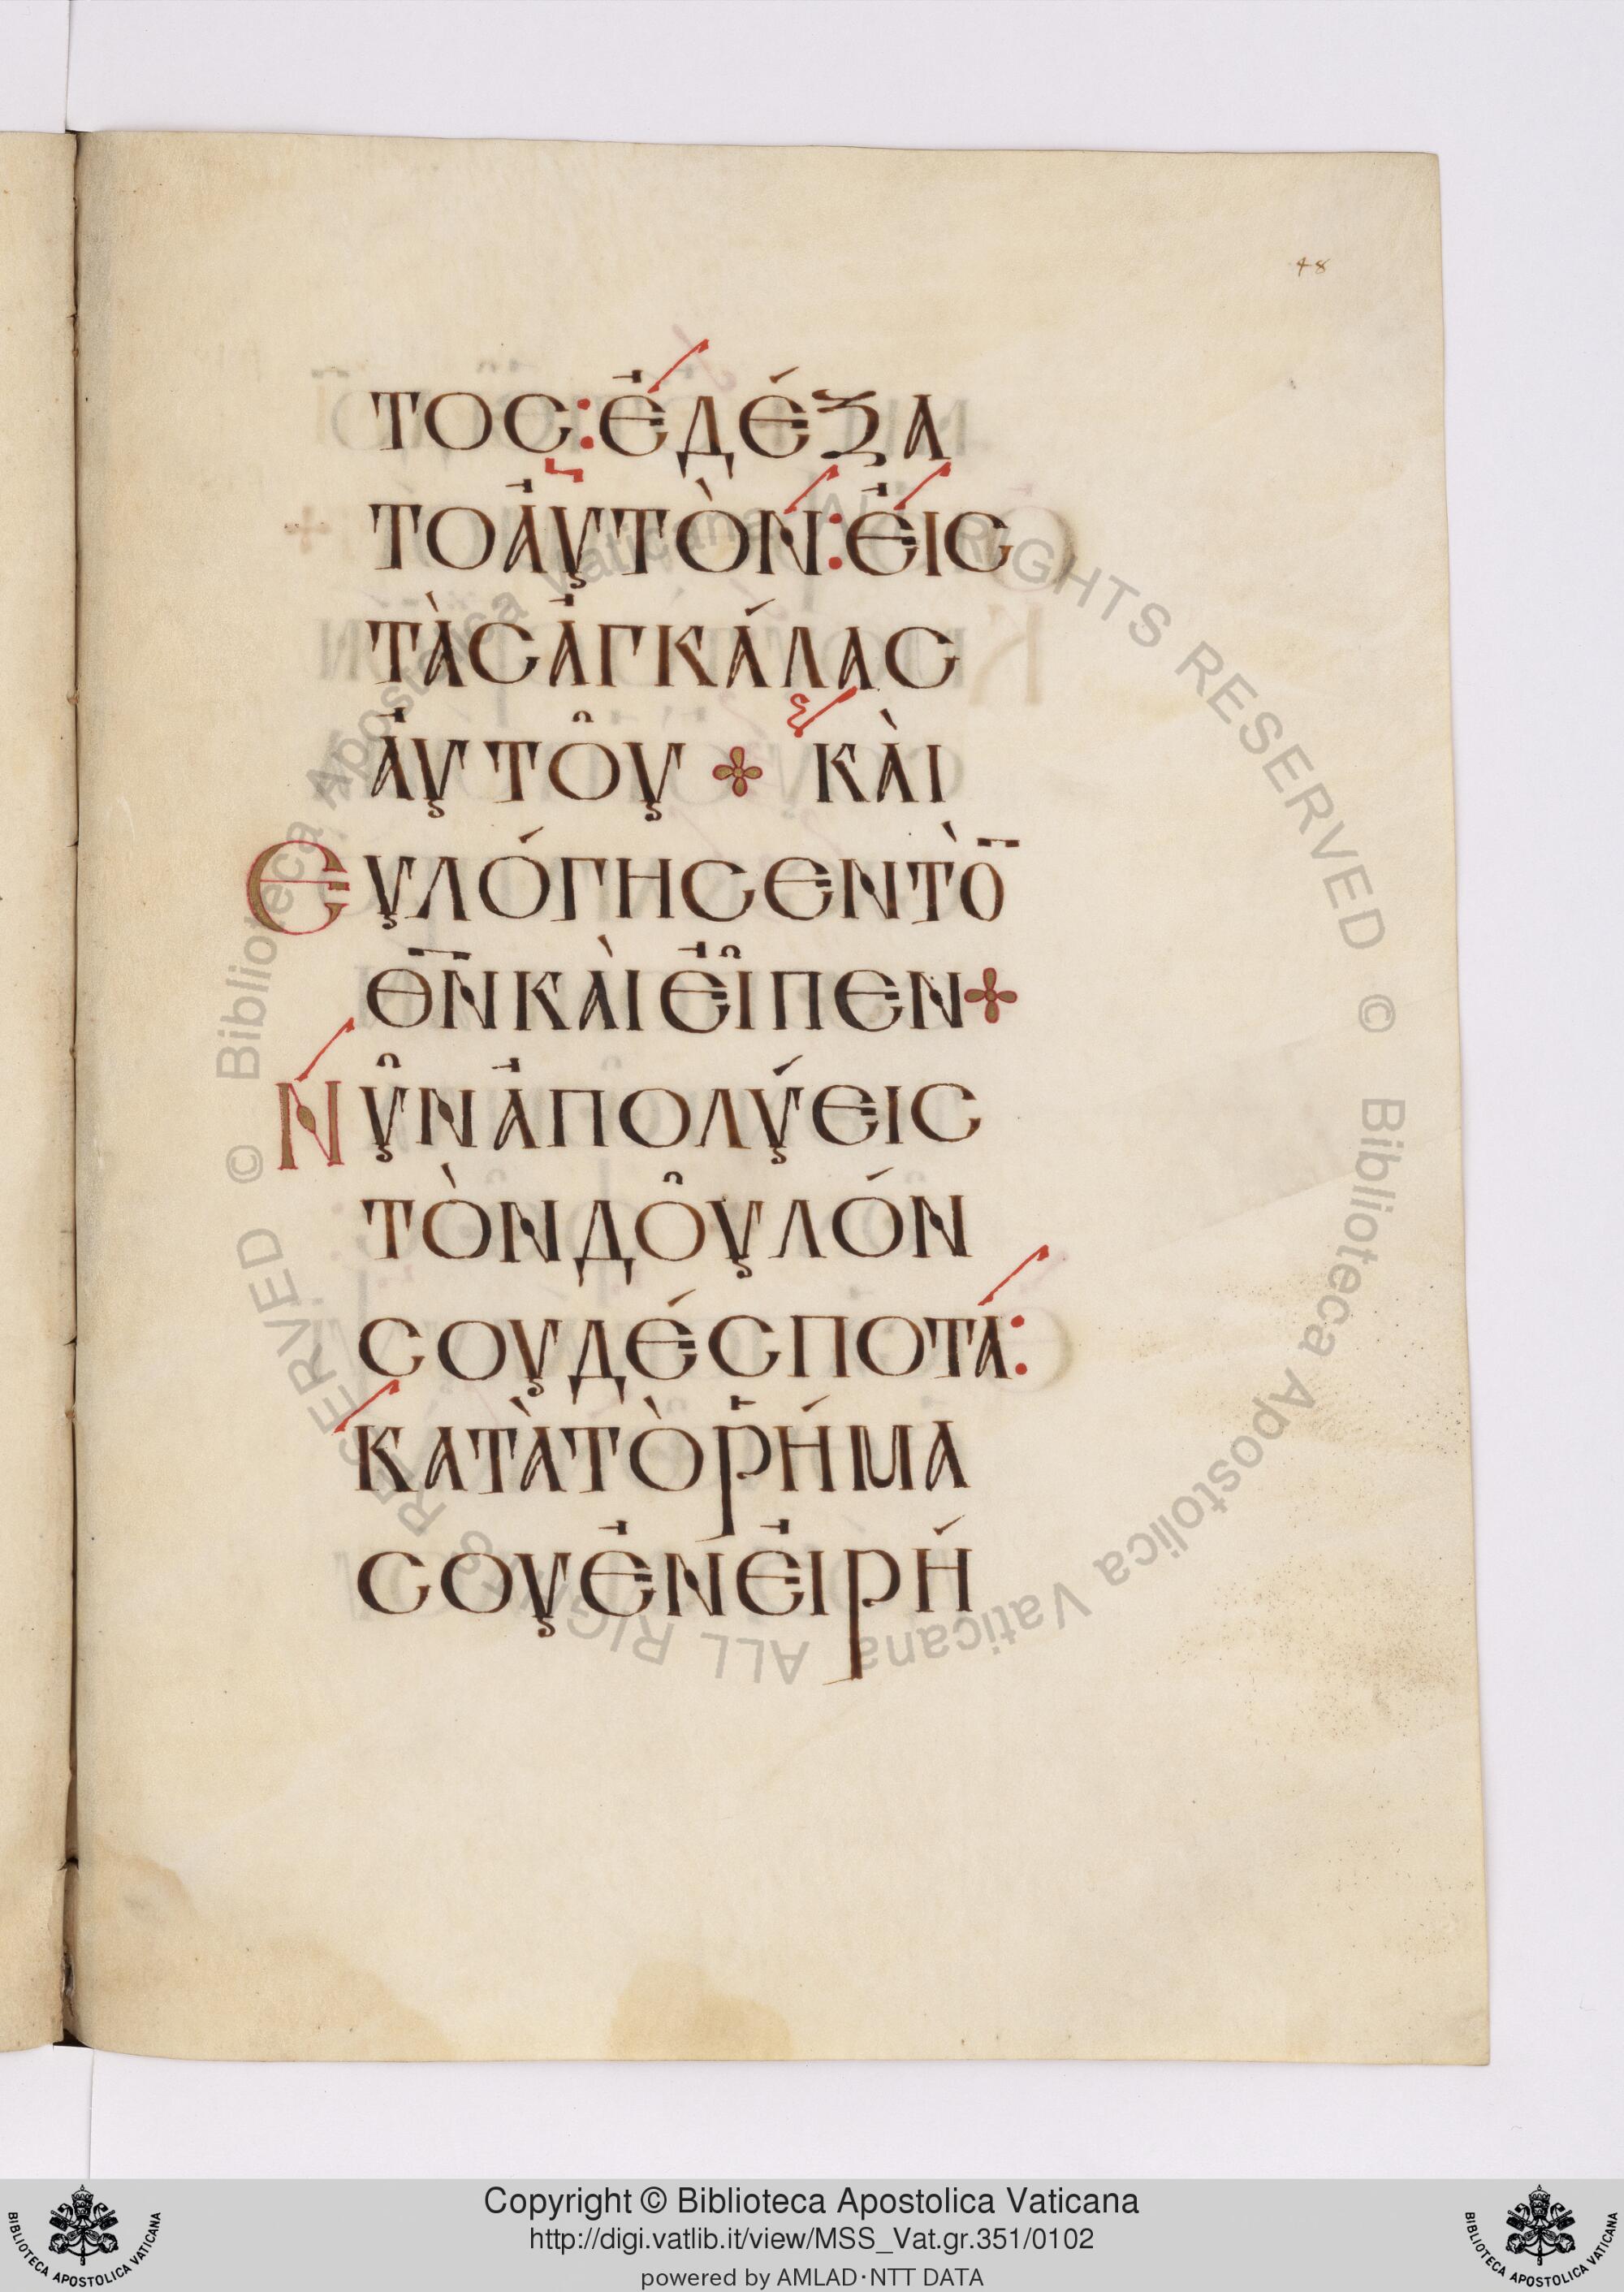 48
ΤΟС: ἘΔΈΞΑ
ΤΟ ἈΥΤῸΝ: ἘΙС
ΤᾺС ἈΓΚΆΛΑС
ἈΥΤΟ͂Υ ᛭ ΚᾺΙ
ΕΥΛΌΓΗСΕΝ ΤῸ̅
Θ̅Ν̅ ΚᾺΙ ἘΙ͂ΠΕΝ ᛭
ΝΥ͂Ν ἈΠΟΛΎΕΙС
ΤῸΝ ΔΟ͂ΥΛΌΝ
СΟΥ ΔΈСΠΟΤΑ:
ΚΑΤᾺ ΤῸ ῬΗ͂ΜΑ
СΟΥ ἘΝ ἘΙΡΉ
© Biblioteca Apostolica Vaticana ALL RIGHTS RESERVED © Biblioteca Apostolica Vaticana ALL RIGHTS RESERVED
Copyright © Biblioteca Apostolica Vaticana
http://digi.vatlib.it/view/MSS_Vat.gr.351/0102
powered by AMLAD·NTT DATA
BIBLIOTECA APOSTOLICA VATICANA
BIBLIOTECA APOSTOLICA VATICANA